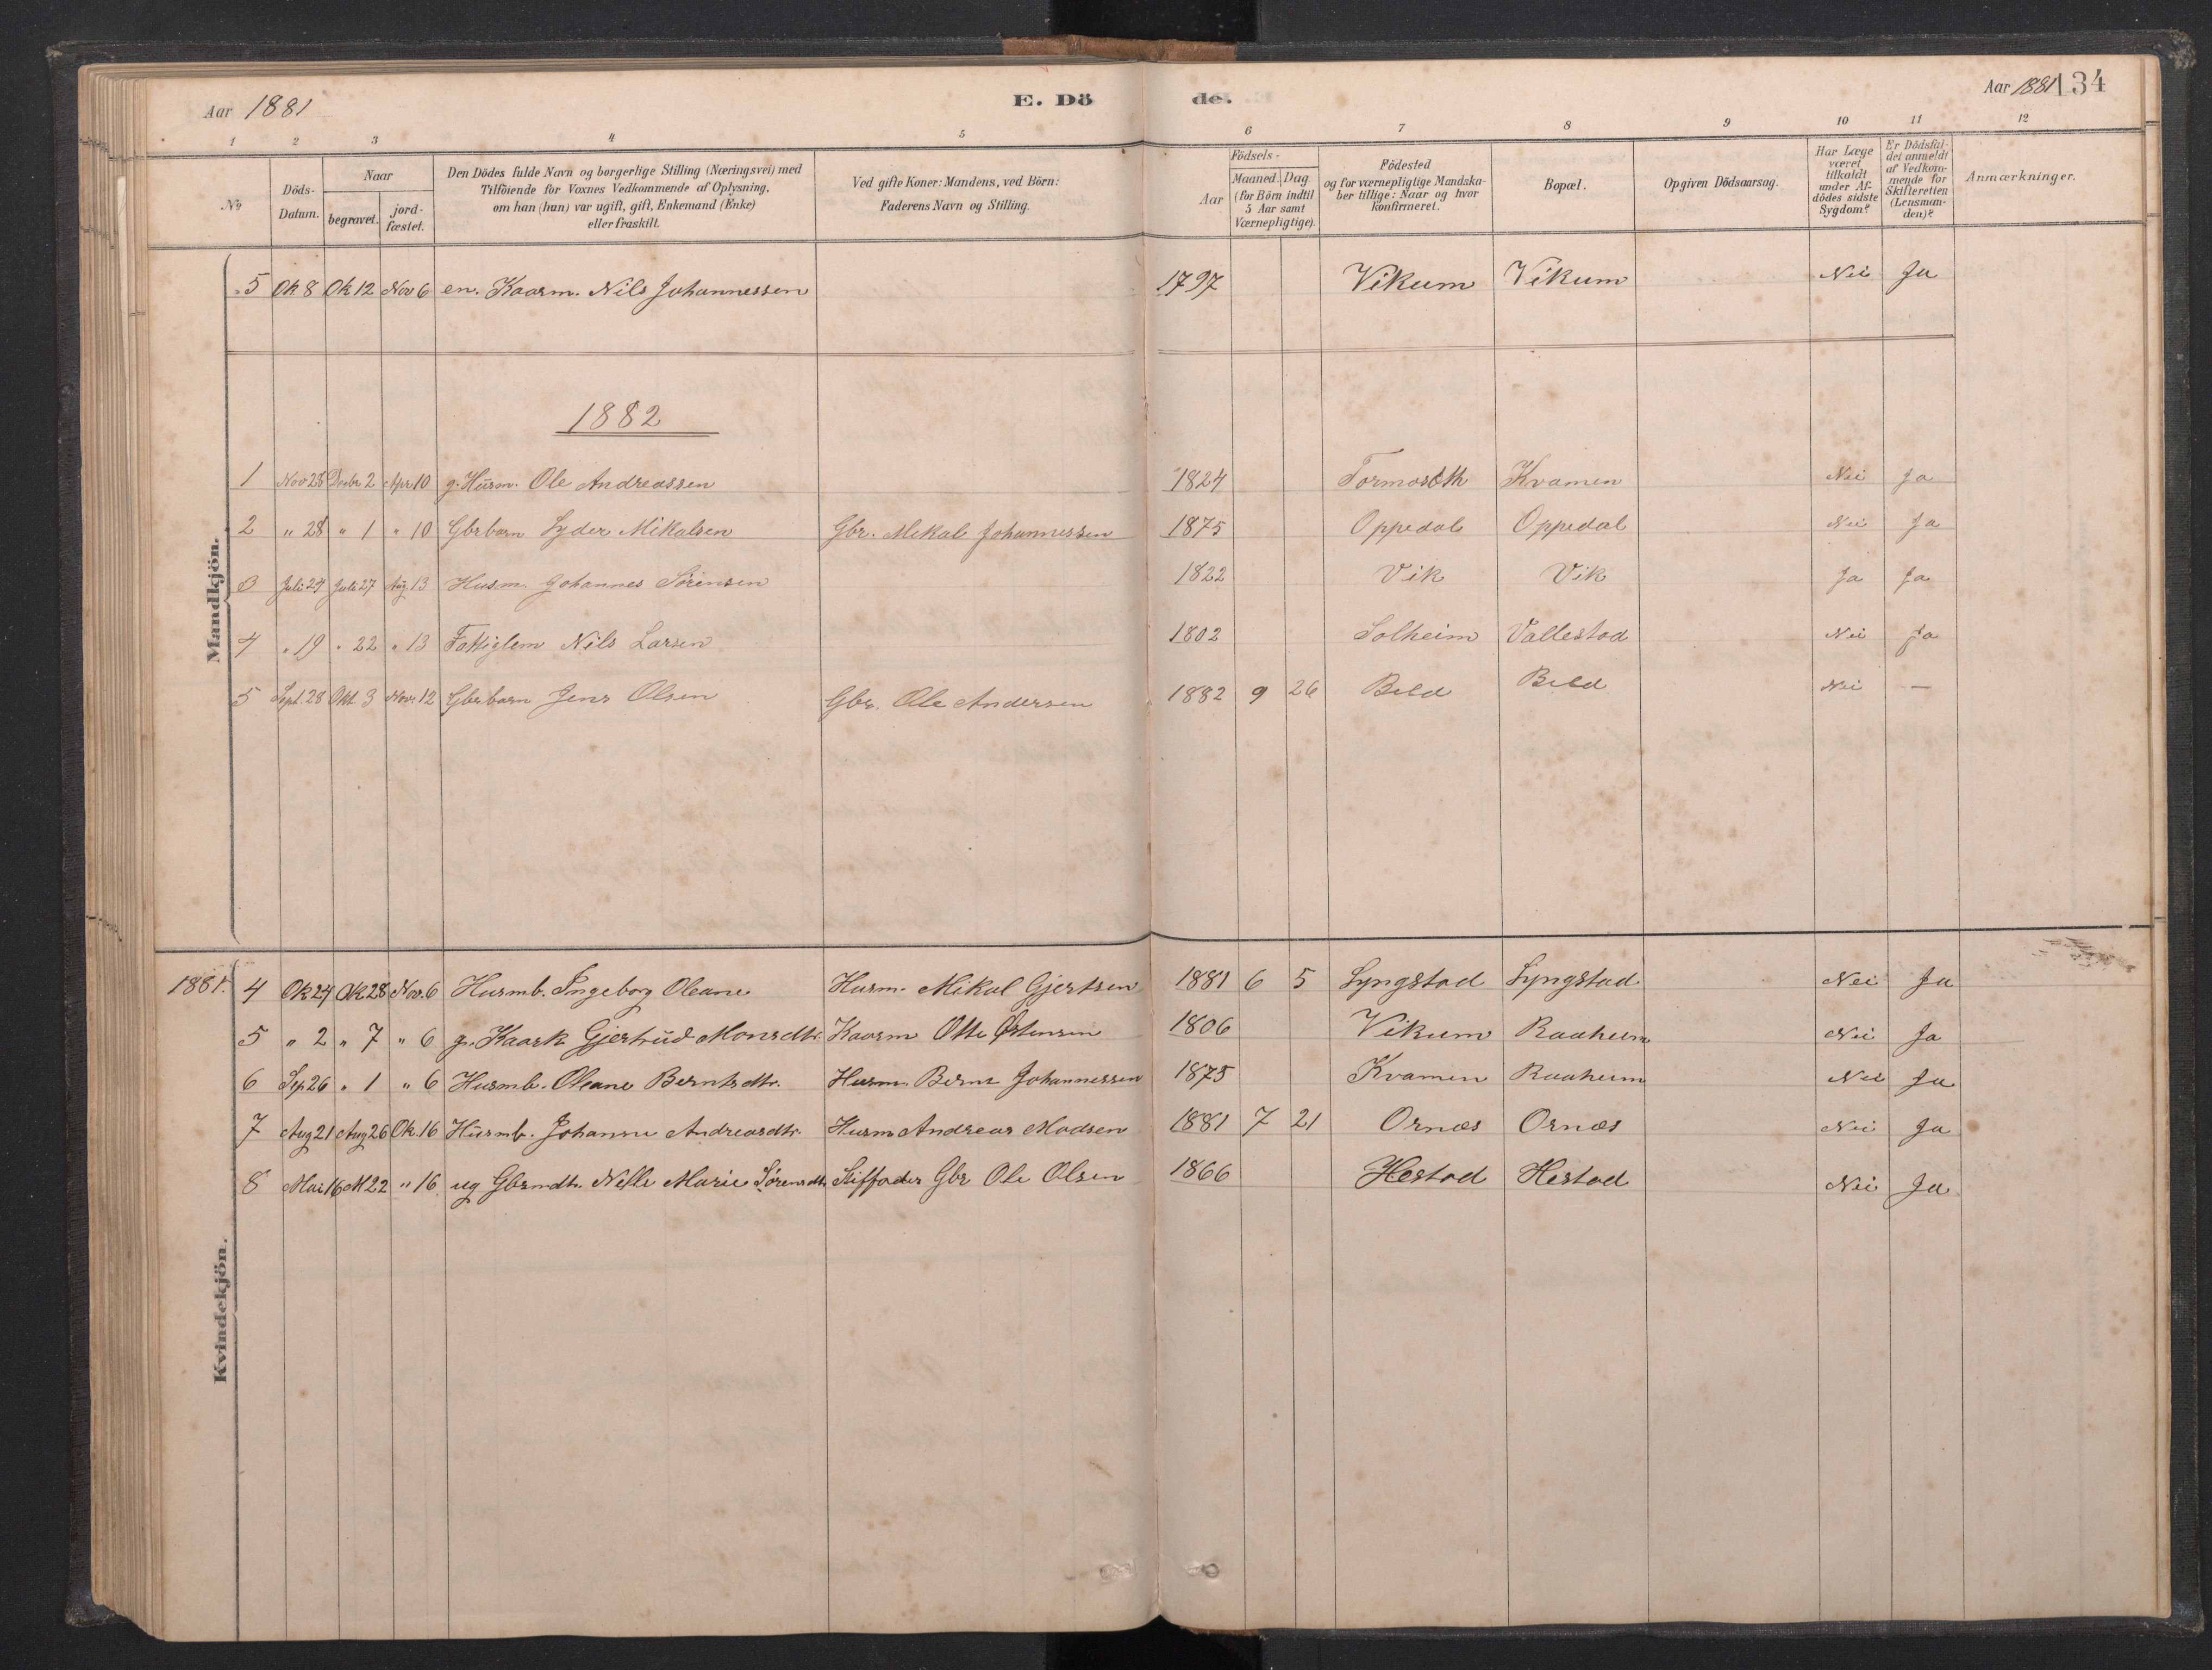 Aar 1881 E. Dö de. Aar 1881 134
1 2 3 4 5 6 7 8 9 10 11 12
№
Döds-Datum.
Naar
begravet.
jord-fæstet.
Den Dödes fulde Navn og borgerlige Stilling (Næringsvei) med
Tilföiende for Voxnes Vedkommende af Oplysning,
om han (hun) var ugift, gift, Enkemand (Enke)
eller fraskilt.
Ved gifte Koner: Mandens, ved Börn:
Faderens Navn og Stilling.
Födsels-
Aar
Maaned. Dag.
(for Börn indtil
5 Aar samt
Værnepligtige).
Födested
og for værnepligtige Mandska-
ber tillige: Naar og hvor
konfirmeret.
Bopæl.
Opgiven Dödsaarsag.
Har Læge
været
tilkaldt
under Af-
dödes sidste
Sygdom?
Er Dödsfal-
det anmeldt
af Vedkom-
mende for
Skifteretten
(Lensman-
den)?
Anmærkninger.
Mandkjön.
5 Ok 8 Ok 12 Nov 6 en. Kaarm. Nils Johannessen 1797 Vikum Vikum Nei Ja
1882
1 Nov 28 Decbr 2 Apr 10 g. Husm. Ole Andreassen 1824 Kvamen Nei Ja
2 " 28 " 1 " 10 Gbrbarn Lyder Mikalsen Gbr. Mikal Johannessen 1875 Oppedal Oppedal Nei Ja
3 Juli 24 Juli 27 Aug. 13 Husm. Johannes Sörensen 1822 Vik Vik Ja Ja
4 " 19 " 22 " 13 Fattiglem Nils Larsen 1802 Solheim Vallestad Nei Ja
5 Sept. 28 Okt. 3 Nov. 12 Gbrbarn Jens Olsen Gbr. Ole Andersen 1882 9 26 Beld Beld Nei —
Kvindekjön.
1881. 4 Ok 24 Ok 28 Nov. 6 Husmb. Ingeborg Oleane Husm. Mikal Gjertsen 1881 6 5 Lyngstad Lyngstad Nei Ja
5 " 2 " 7 " 6 g. Kaark Gjertrud Monsdtr. Kaarm Otte Östensen 1806 Vikum Raaheim Nei Ja
6 Sep 26 " 1 " 6 Husmb. Oleane Berntsdtr. Husm. Bernt Johannessen 1875 Kvamen Raaheim Nei Ja
7 Aug 21 Aug 26 Ok. 16 Husmb. Johanne Andreasdtr. Husm Andreas Madsen 1881 7 21 Ornæs Ornæs Nei Ja
8 Mai 16 M 22 " 16 ug Gbrmdtr. Nille Marie Sörensdtr. Stiffader Gbr Ole Olsen 1866 Hestad Hestad Nei Ja